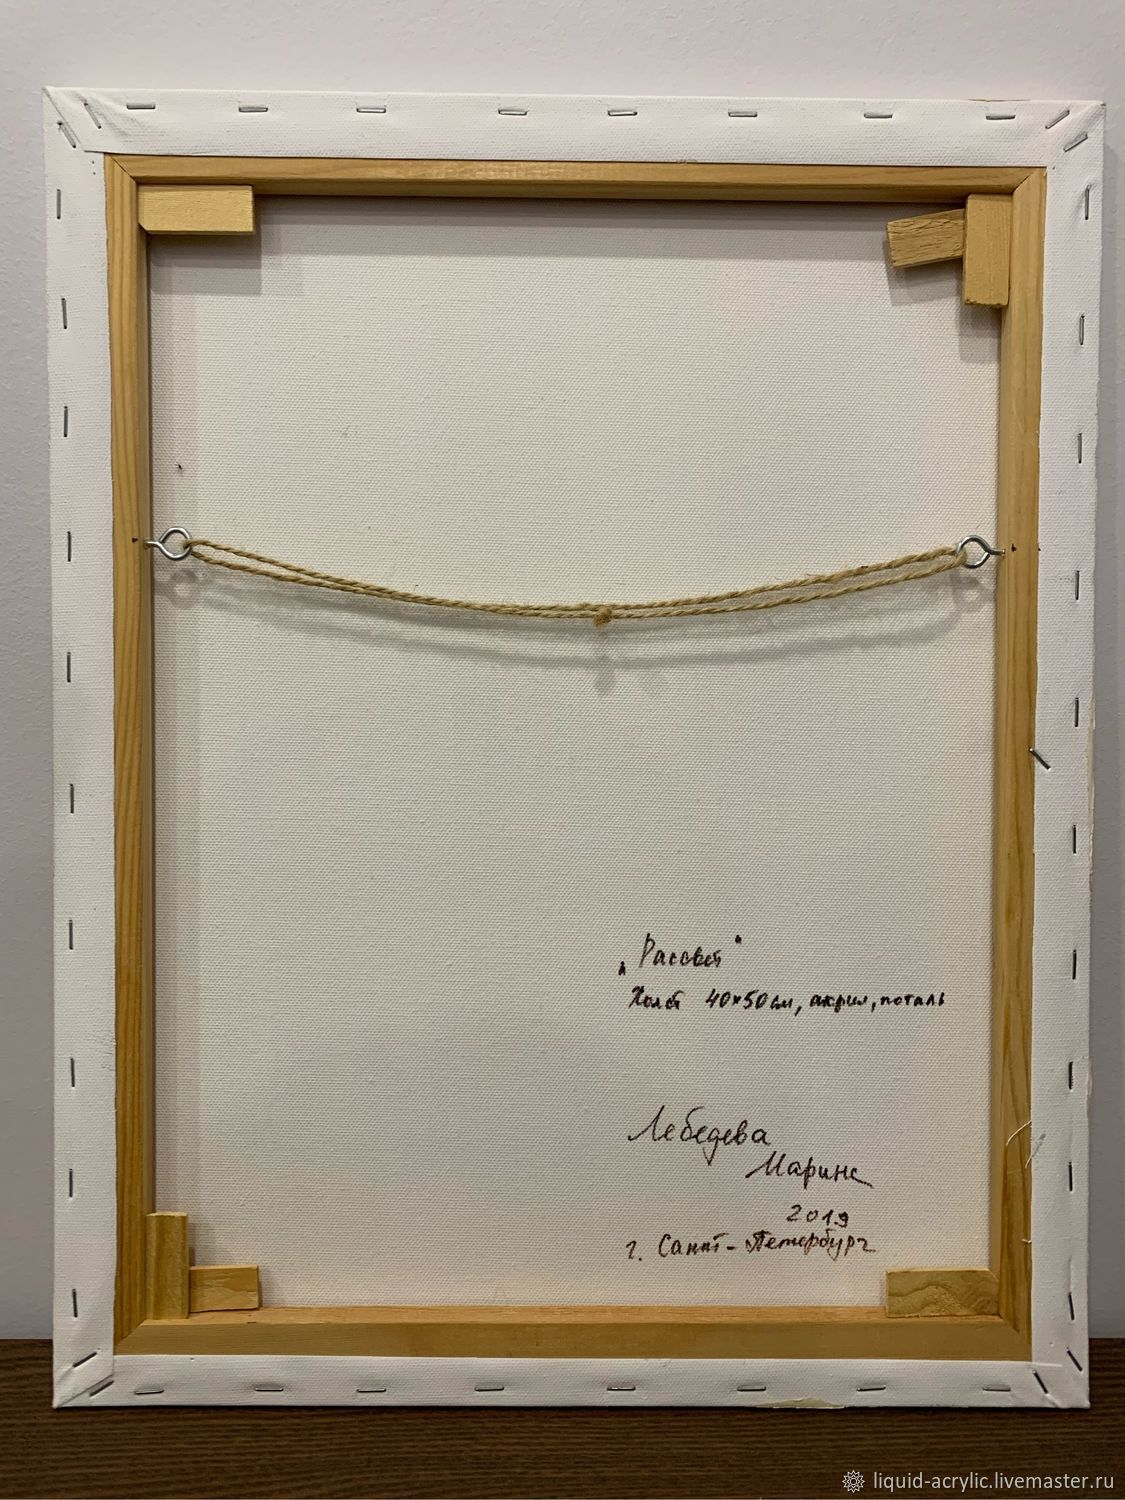 „Рассвет"
Холст 40×50 см, акрил, поталь
Лебедева
Марина
2019
г. Санкт-Петербург
liquid-acrylic.livemaster.ru